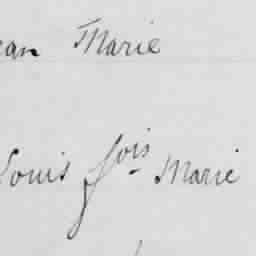 ean Marie
Louis fois Marie